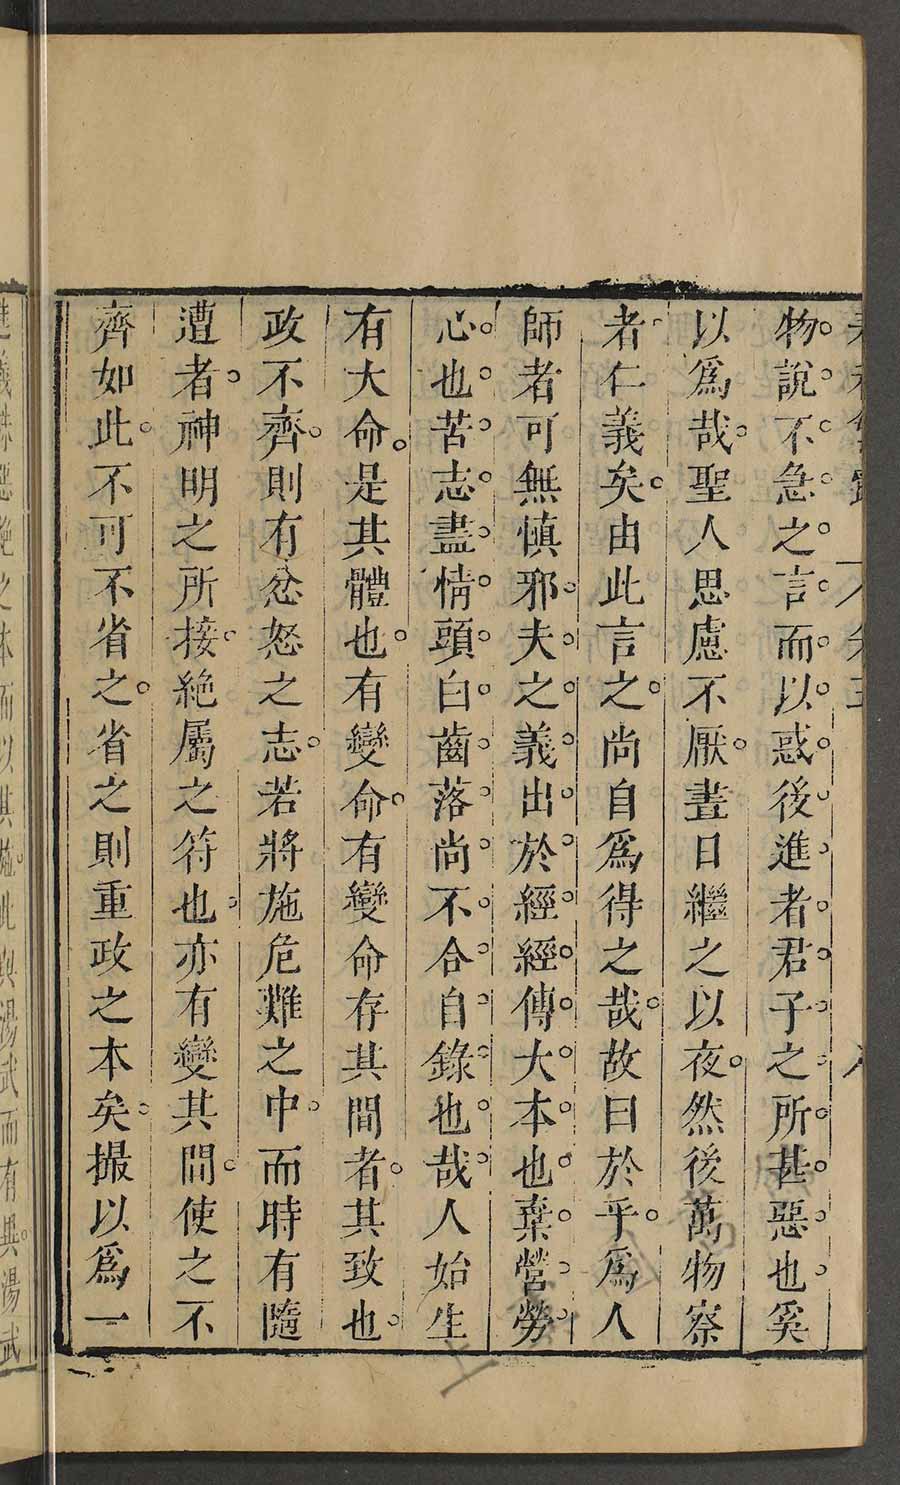 物說不急之言而以惑後進者君子之所甚惡也奚
以爲哉聖人思慮不厭晝日繼之以夜然後萬物察
者仁義矣由此言之尚自爲得之哉故曰於乎爲人
師者可無慎邪夫之義出於經經傳大本也棄營勞
心也苦志盡情頭白齒落尚不合自錄也哉人始生
有大命是其體也有變命有變命存其間者其致也
政不齊則有忿怒之志若將施危難之中而時有隨
遭者神明之所接絶屬之符也亦有變其間使之不
齊如此不可不省之省之則重政之本矣撮以爲一
進義誅惡絶之本而以其施此與湯武而有異湯武